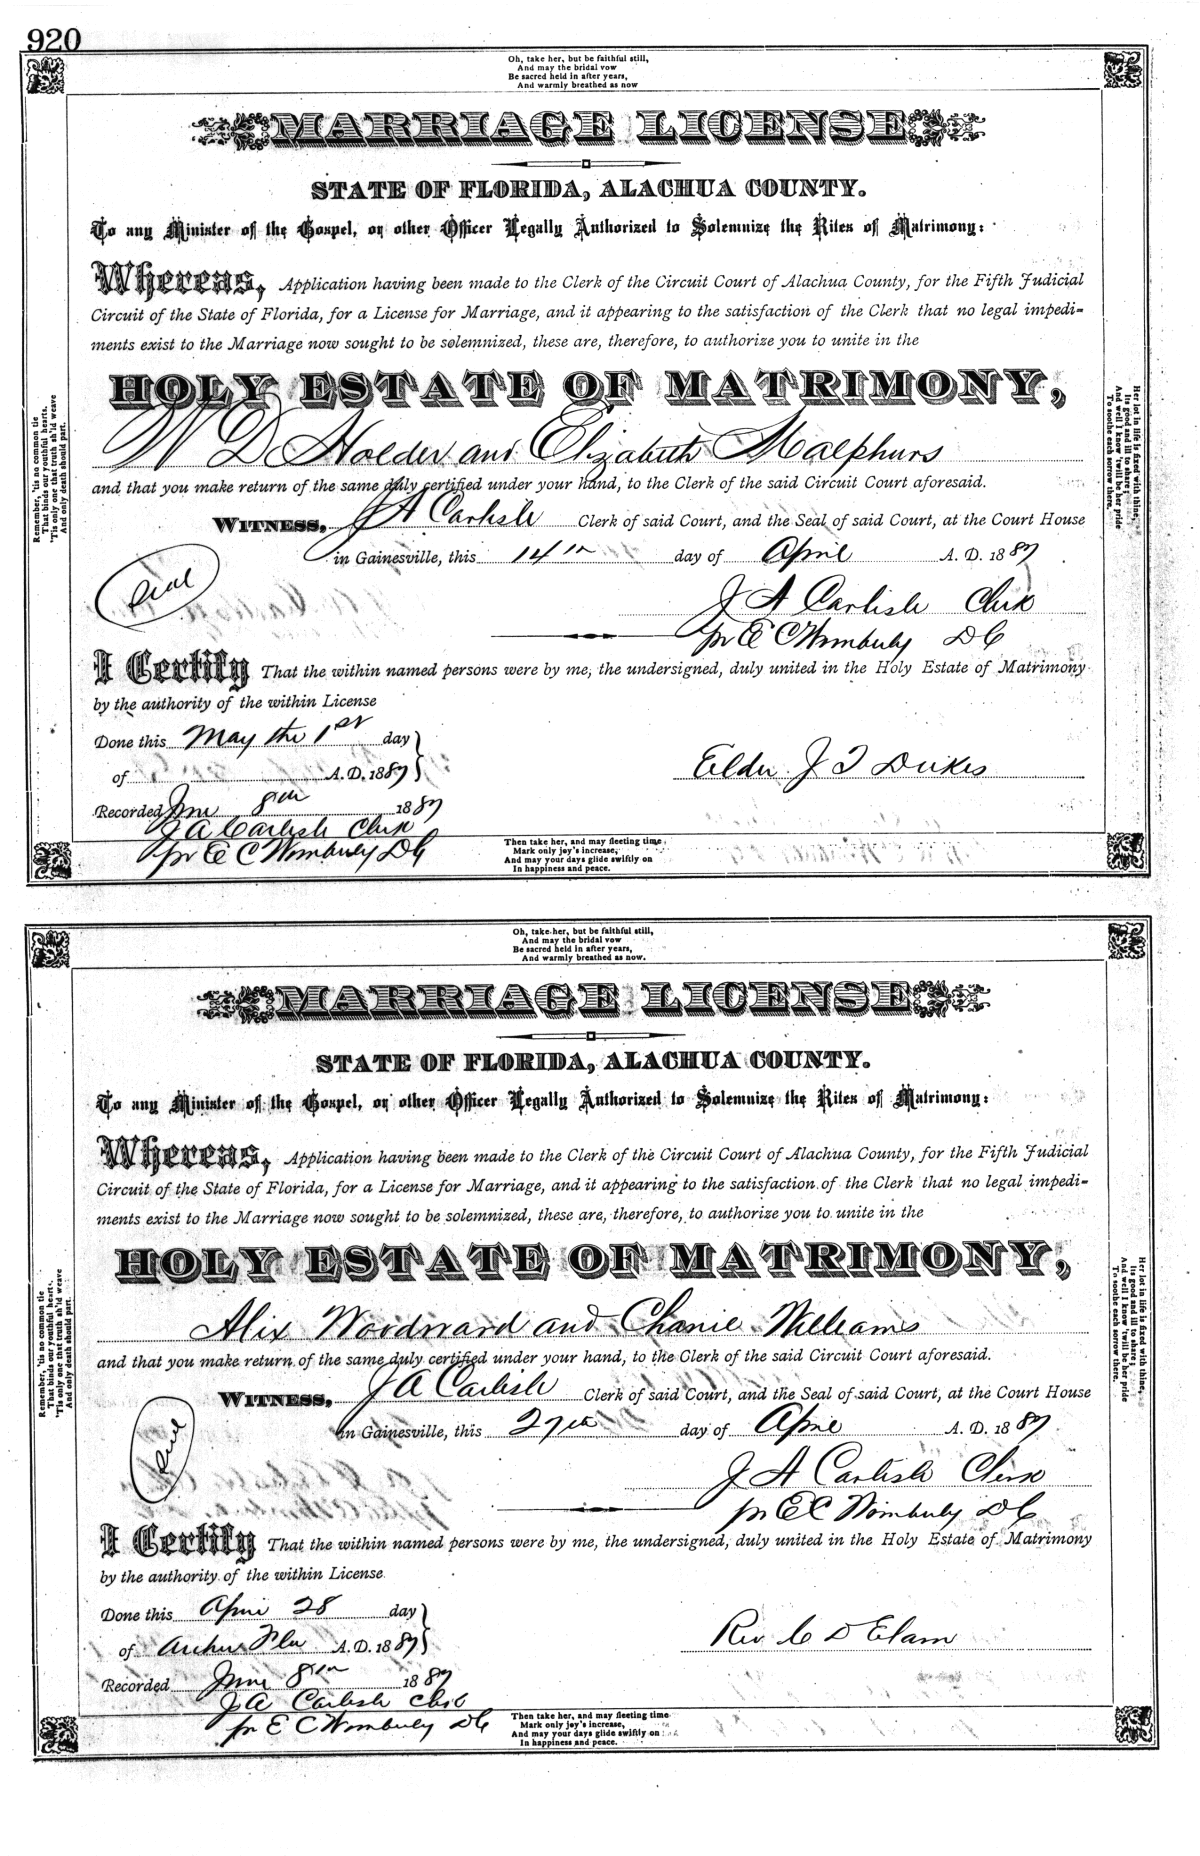 920
Oh, take her, but be faithful still,
And may the bridal vow
Be sacred held in after years,
And warmly breathed as now
MARRIAGE LICENSE
STATE OF FLORIDA, ALACHUA COUNTY.
To any Minister of the Gospel, or other Officer Legally Authorized to Solemnize the Rites of Matrimony:
Whereas, Application having been made to the Clerk of the Circuit Court of Alachua County, for the Fifth Judicial
Circuit of the State of Florida, for a License for Marriage, and it appearing to the satisfaction of the Clerk that no legal impedi-
ments exist to the Marriage now sought to be solemnized, these are, therefore, to authorize you to unite in the
HOLY ESTATE OF MATRIMONY,
W D Holder and Elizabeth Malphurs
and that you make return of the same duly certified under your hand, to the Clerk of the said Circuit Court aforesaid.
WITNESS, J A Carlisle Clerk of said Court, and the Seal of said Court, at the Court House
in Gainesville, this 14th day of April A. D. 1887
Seal
J A Carlisle Clerk
pr E C Wimberly D C
I Certify That the within named persons were by me, the undersigned, duly united in the Holy Estate of Matrimony
by the authority of the within License
Done this May the 1st day
of A. D. 1887
Elder J T Dukes
Recorded June 8th 1887
J A Carlisle Clerk
pr E C Wimberly D C
Remember, 'tis no common tie
That binds our youthful hearts,
'Tis only one that truth sh'ld weave
And only death should part.
Her lot in life is fixed with thine,
Its good and ill to share;
And well I know 'twill be her pride
To soothe each sorrow there.
Then take her, and may fleeting time
Mark only joy's increase,
And may your days glide swiftly on
In happiness and peace.
Oh, take her, but be faithful still,
And may the bridal vow
Be sacred held in after years,
And warmly breathed as now.
MARRIAGE LICENSE
STATE OF FLORIDA, ALACHUA COUNTY.
To any Minister of the Gospel, or other Officer Legally Authorized to Solemnize the Rites of Matrimony:
Whereas, Application having been made to the Clerk of the Circuit Court of Alachua County, for the Fifth Judicial
Circuit of the State of Florida, for a License for Marriage, and it appearing to the satisfaction of the Clerk that no legal impedi-
ments exist to the Marriage now sought to be solemnized, these are, therefore, to authorize you to unite in the
HOLY ESTATE OF MATRIMONY,
Alix Woodward and Chanie Williams
and that you make return of the same duly certified under your hand, to the Clerk of the said Circuit Court aforesaid.
WITNESS, J A Carlisle Clerk of said Court, and the Seal of said Court, at the Court House
in Gainesville, this 27th day of April A. D. 1887
Seal
J A Carlisle Clerk
pr E C Wimberly D C
I Certify That the within named persons were by me, the undersigned, duly united in the Holy Estate of Matrimony
by the authority of the within License
Done this April 28 day
of Archer Fla A. D. 1887
Rev C D Elam
Recorded June 8th 1887
J A Carlisle Clerk
pr E C Wimberly D C
Remember, 'tis no common tie
That binds our youthful hearts,
'Tis only one that truth sh'ld weave
And only death should part.
Her lot in life is fixed with thine,
Its good and ill to share;
And well I know 'twill be her pride
To soothe each sorrow there.
Then take her, and may fleeting time
Mark only joy's increase,
And may your days glide swiftly on
In happiness and peace.